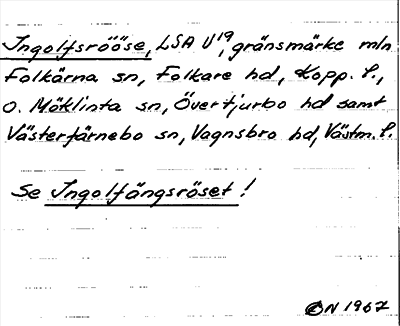 Ingolfsrööse, LSA U¹⁹, gränsmärke mln
Folkärna sn, Folkare hd, Kopp. l.,
o. Möklinta sn, Övertjurbo hd samt
Västerfärnebo sn, Vagnsbro hd, Västm. l.
Se Ingolfängsröset!
EN 1967